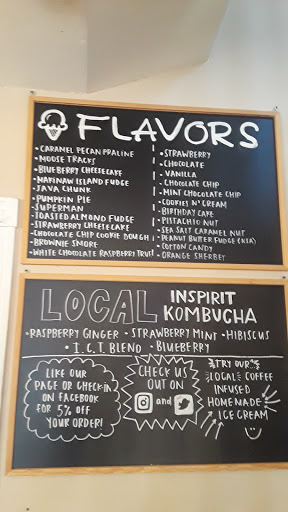 FLAVORS
• CARAMEL PECAN PRALINE
• MOOSE TRACKS
• BLUEBERRY CHEESECAKE
• MAKINAW ISLAND FUDGE
• JAVA CHUNK
• PUMPKIN PIE
• SUPERMAN
• TOASTED ALMOND FUDGE
• STRAWBERRY CHEESECAKE
• CHOCOLATE CHIP COOKIE DOUGH
• BROWNIE SMORE
• WHITE CHOCOLATE RASPBERRY TRUFF
• STRAWBERRY
• CHOCOLATE
• VANILLA
• CHOCOLATE CHIP
• MINT CHOCOLATE CHIP
• COOKIES N' CREAM
• BIRTHDAY CAKE
• PISTACHIO NUT
• SEA SALT CARAMEL NUT
• PEANUT BUTTER FUDGE
• COTTON CANDY
• ORANGE SHERBET
LOCAL INSPIRIT
KOMBUCHA
• RASPBERRY GINGER • STRAWBERRY MINT • HIBISCUS
• I.C.T BLEND • BLUEBERRY
LIKE OUR
PAGE OR CHECK-IN
ON FACEBOOK
FOR 5% OFF
YOUR ORDER!
CHECK US
OUT ON
and
TRY OUR
LOCAL COFFEE
INFUSED
HOMEMADE
ICE CREAM